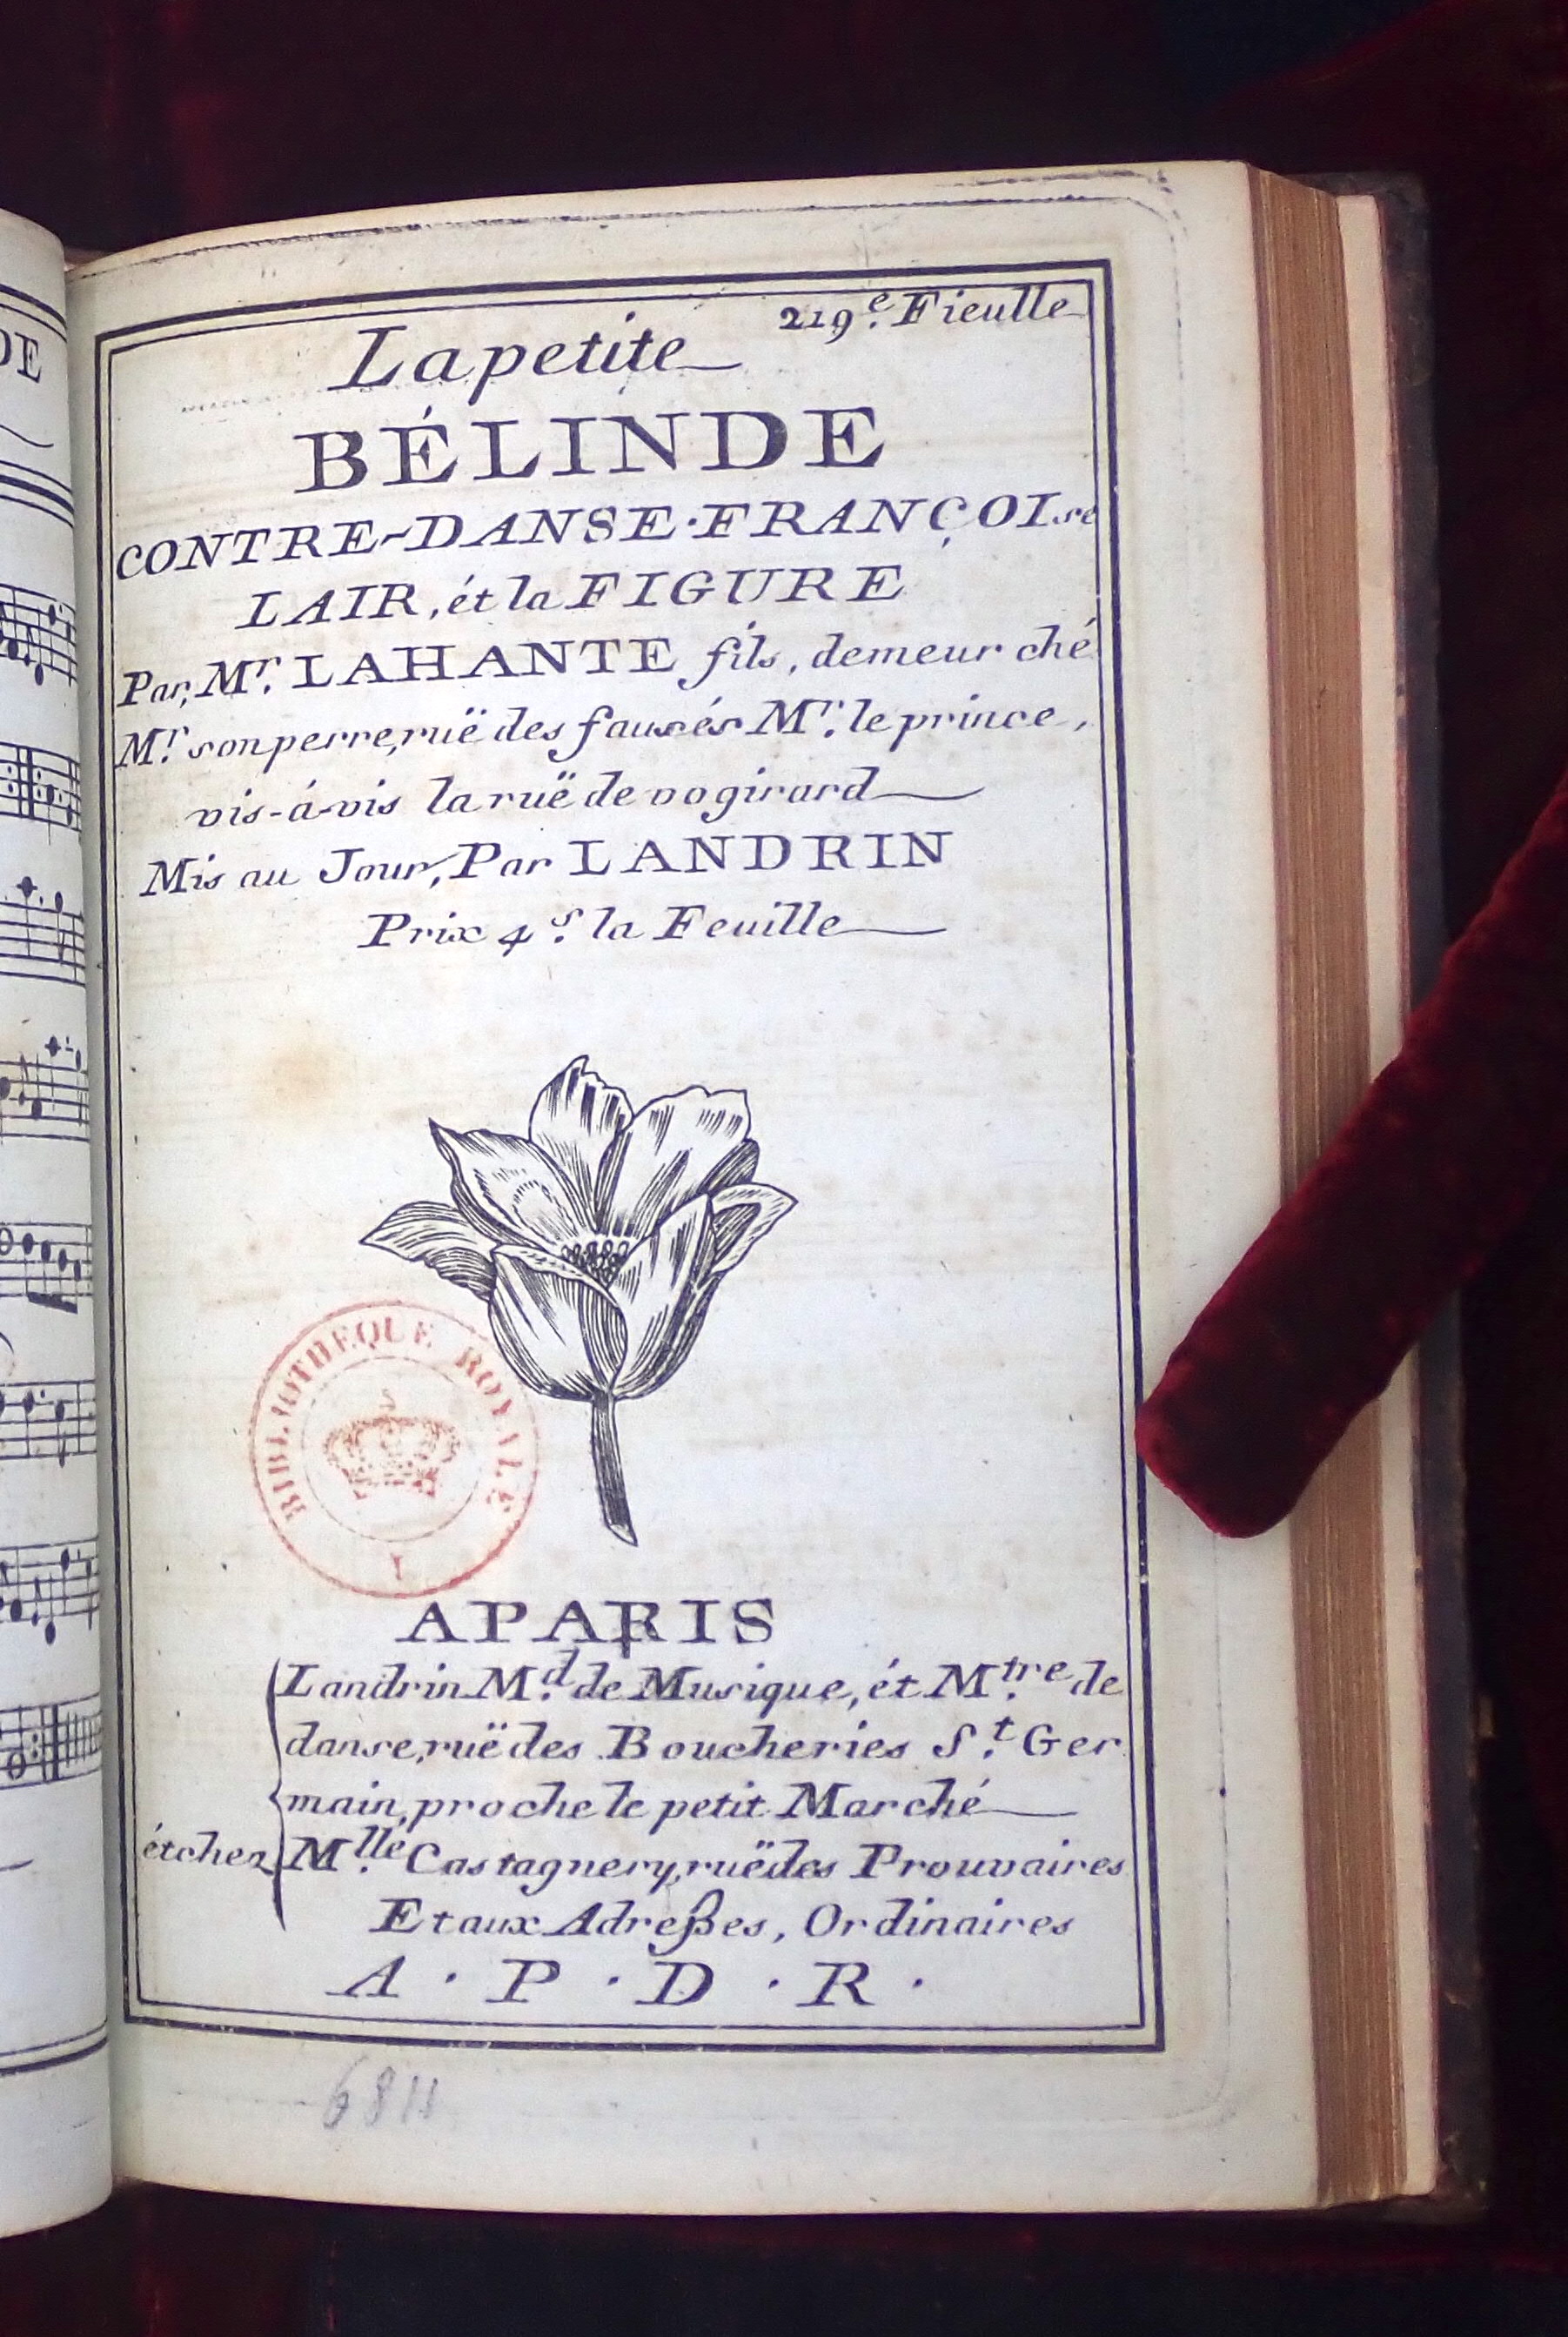 DE
219.e Fieulle
La petite
BÉLINDE
CONTRE-DANSE·FRANÇOIse
LAIR, ét la FIGURE
Par, Mr. LAHANTE fils, demeur ché
Mr. son perre, ruë des fausés Mr. le prince,
vis-á-vis la ruë de vogirard
Mis au Jour, Par LANDRIN
Prix 4.s la Feuille
BIBLIOTHEQUE ROYALE
I
A PARIS
Landrin M.d de Musique, ét M.tre de
danse, ruë des Boucheries S.t Ger
main, proche le petit Marché
ét chez M.lle Castagnery, ruë des Prouvaires
Et aux Adreßes, Ordinaires
A · P · D · R ·
6811